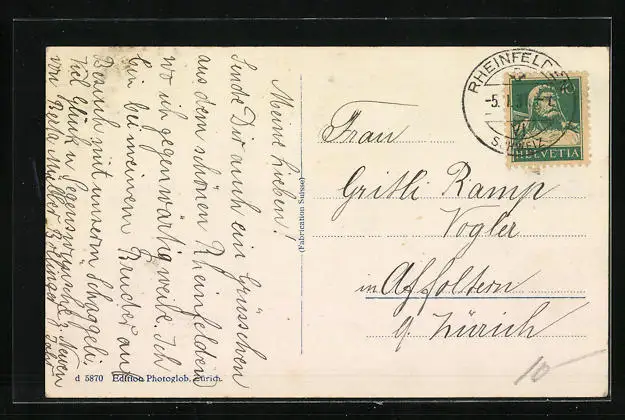 Meine Lieben!
Sende Dir auch ein Grüsschen
aus dem schönen Rheinfelden
wo ich gegenwärtig weile. Ich
bin bei meinem Bruder auf
Besuch mit unserm Schaggeli.
Viel Glück u. Segenswünsche z. Neuen
Jahr
von Berta Müller
(Fabrication Suisse)
d 5870 Edition Photoglob, Zürich.
RHEINFELDEN
SCHWEIZ
HELVETIA
Frau
Gritli Ramp
Vogler
in Affoltern
b. Zürich
10